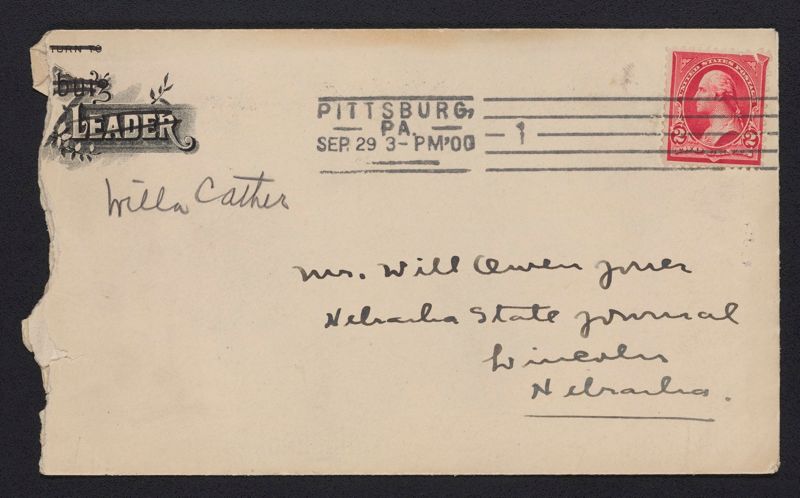 TURN TO
burg
LEADER
PITTSBURG,
PA.
SEP. 29 3-PM '00
1
UNITED STATES POSTAGE
2 2
Willa Cather
Mr. Will Owen Jones
Nebraska State Journal
Lincoln
Nebraska.